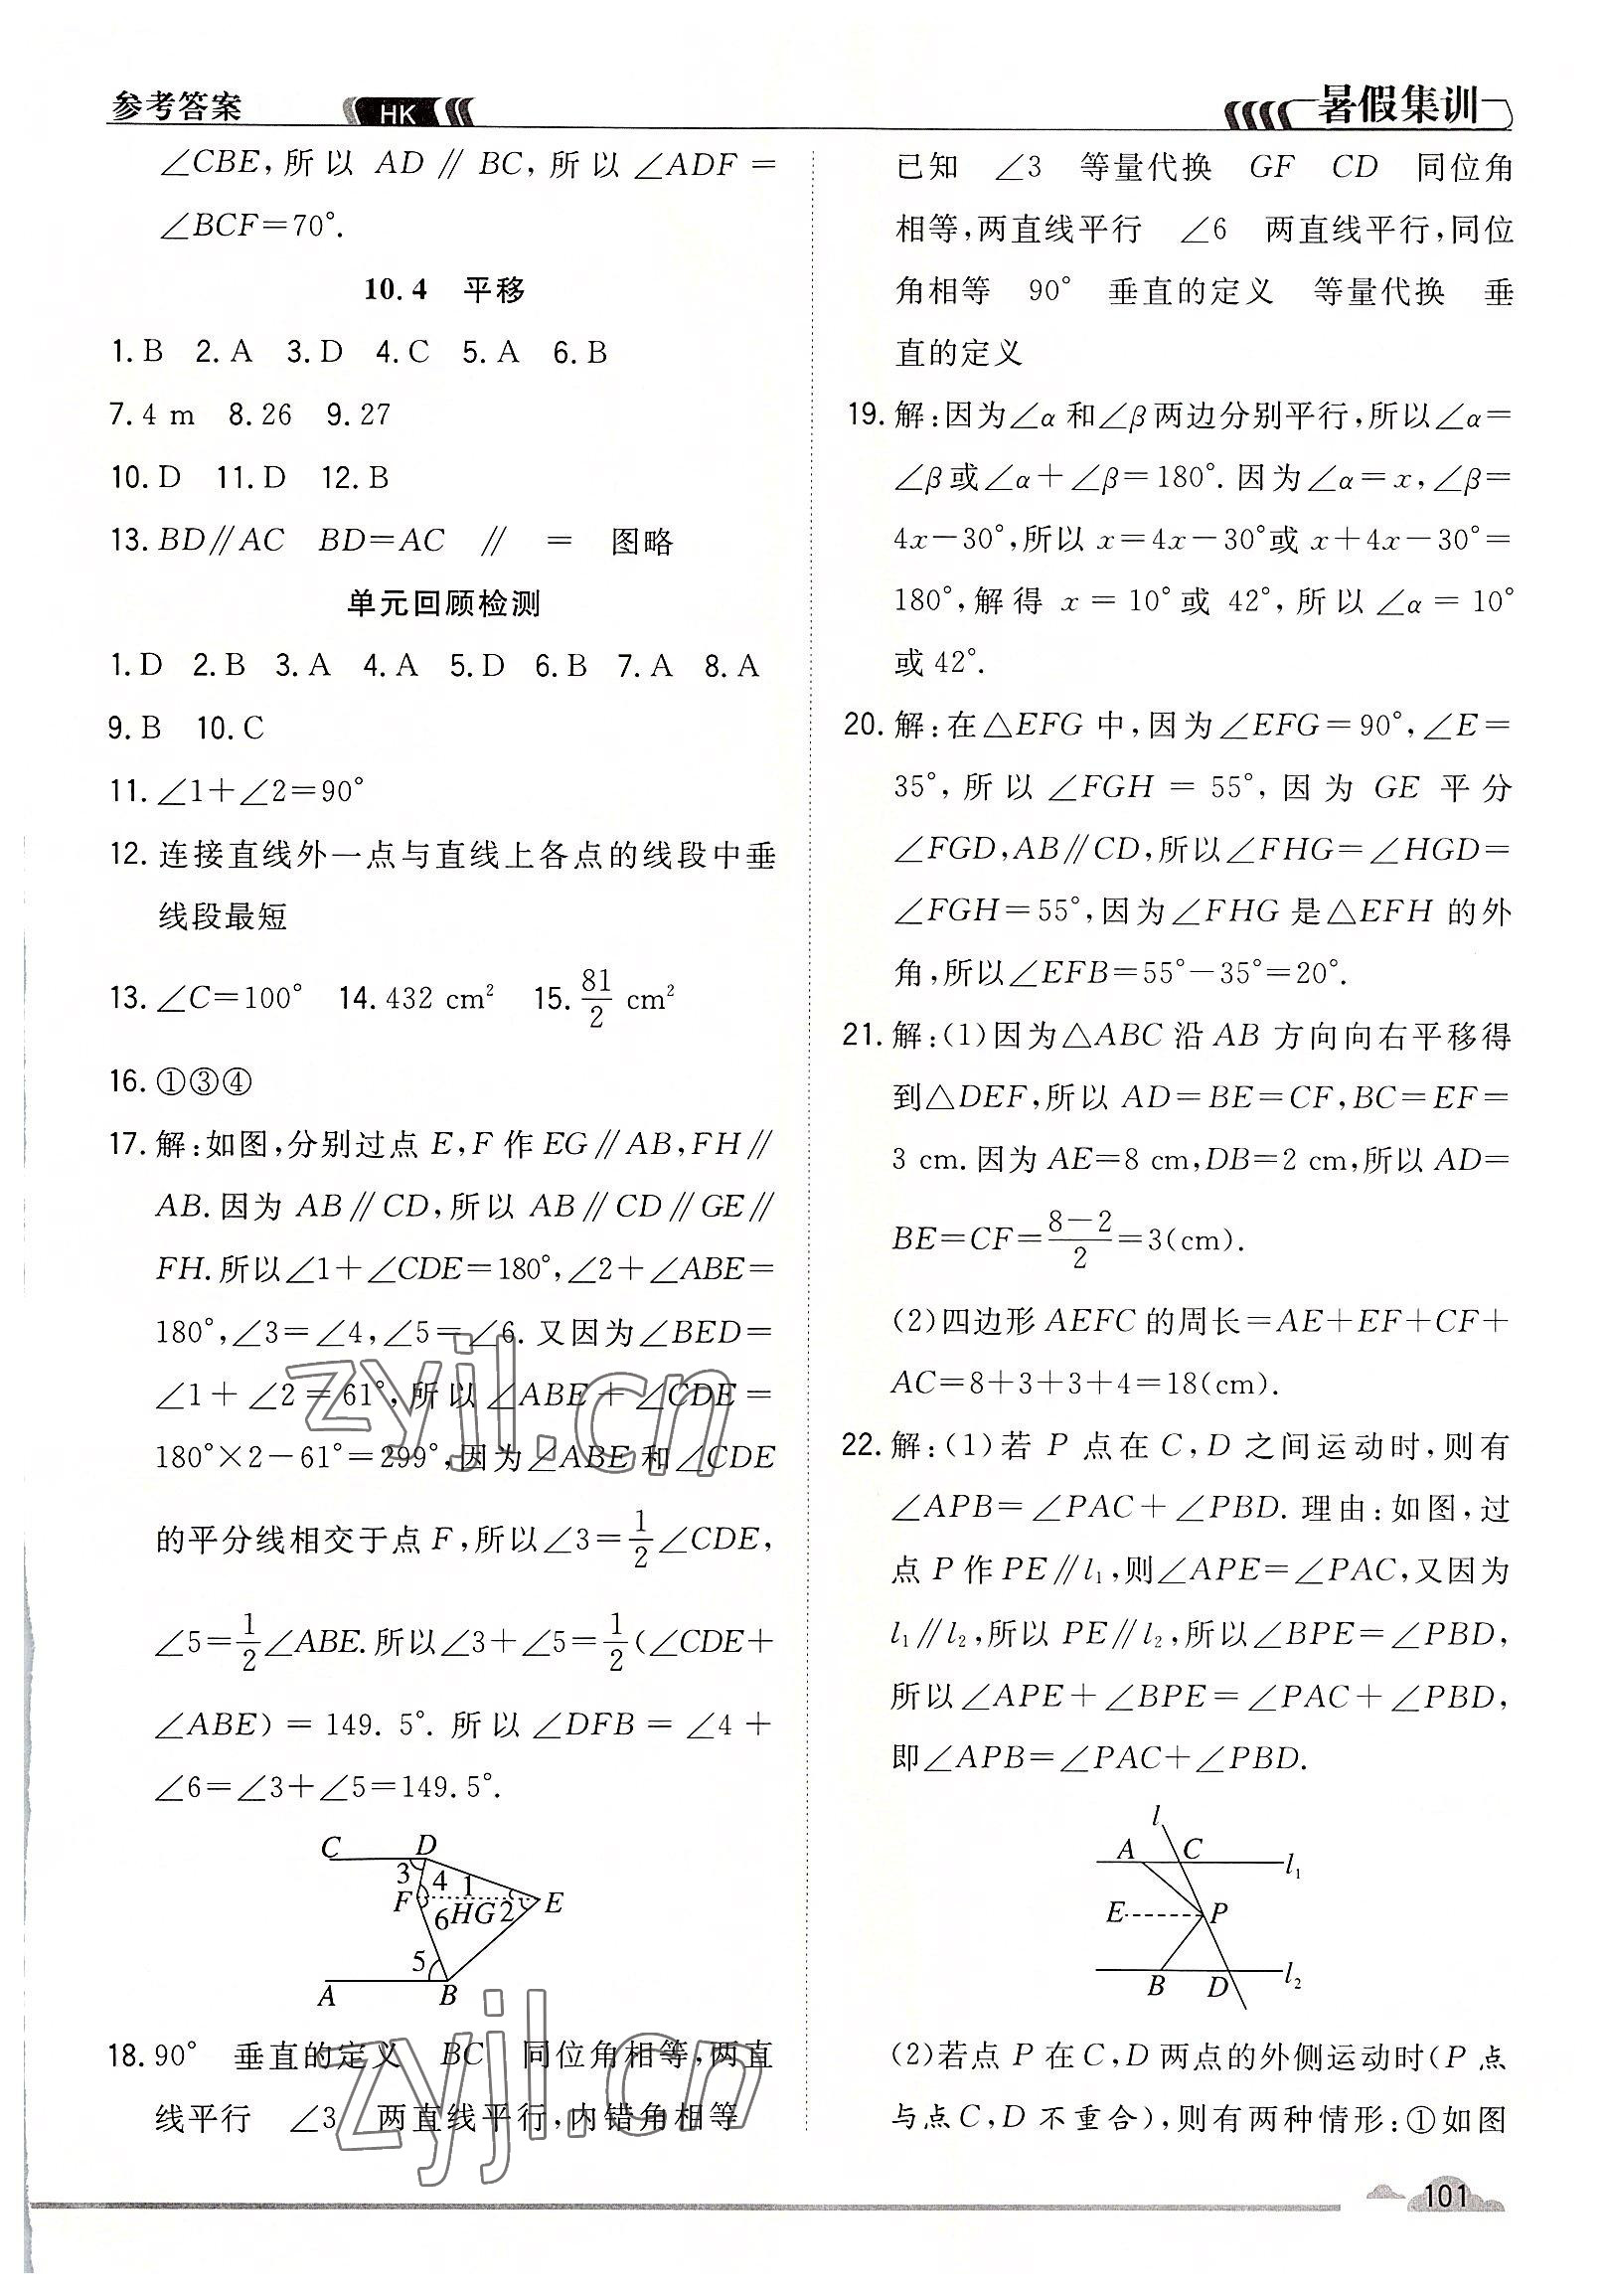 参考答案
HK
暑假集训
∠CBE,所以 AD∥BC,所以∠ADF=
∠BCF=70°.
10.4 平移
1.B 2.A 3.D 4.C 5.A 6.B
7.4 m 8.26 9.27
10.D 11.D 12.B
13.BD∥AC BD=AC ∥ = 图略
单元回顾检测
1.D 2.B 3.A 4.A 5.D 6.B 7.A 8.A
9.B 10.C
11.∠1+∠2=90°
12.连接直线外一点与直线上各点的线段中垂
线段最短
13.∠C=100° 14.432 cm² 15.81/2 cm²
16.①③④
17.解:如图,分别过点 E,F 作 EG∥AB,FH∥
AB.因为 AB∥CD,所以 AB∥CD∥GE∥
FH.所以∠1+∠CDE=180°,∠2+∠ABE=
180°,∠3=∠4,∠5=∠6.又因为∠BED=
∠1+∠2=61°,所以∠ABE+∠CDE=
180°×2-61°=299°,因为∠ABE和∠CDE
的平分线相交于点 F,所以∠3=1/2∠CDE,
∠5=1/2∠ABE.所以∠3+∠5=1/2(∠CDE+
∠ABE)=149.5°.所以∠DFB=∠4+
∠6=∠3+∠5=149.5°.
C D
3 4 1
F HG 2 E
6
5
A B
18.90° 垂直的定义 BC 同位角相等,两直
线平行 ∠3 两直线平行,内错角相等
已知 ∠3 等量代换 GF CD 同位角
相等,两直线平行 ∠6 两直线平行,同位
角相等 90° 垂直的定义 等量代换 垂
直的定义
19.解:因为∠α和∠β两边分别平行,所以∠α=
∠β或∠α+∠β=180°.因为∠α=x,∠β=
4x-30°,所以 x=4x-30°或 x+4x-30°=
180°,解得 x=10°或 42°,所以∠α=10°
或 42°.
20.解:在△EFG 中,因为∠EFG=90°,∠E=
35°,所以∠FGH=55°,因为 GE 平分
∠FGD,AB∥CD,所以∠FHG=∠HGD=
∠FGH=55°,因为∠FHG 是△EFH 的外
角,所以∠EFB=55°-35°=20°.
21.解:(1)因为△ABC 沿 AB 方向向右平移得
到△DEF,所以 AD=BE=CF,BC=EF=
3 cm.因为 AE=8 cm,DB=2 cm,所以 AD=
BE=CF=(8-2)/2=3(cm).
(2)四边形 AEFC 的周长=AE+EF+CF+
AC=8+3+3+4=18(cm).
22.解:(1)若 P 点在 C,D 之间运动时,则有
∠APB=∠PAC+∠PBD.理由:如图,过
点 P 作 PE∥l₁,则∠APE=∠PAC,又因为
l₁∥l₂,所以 PE∥l₂,所以∠BPE=∠PBD,
所以∠APE+∠BPE=∠PAC+∠PBD,
即∠APB=∠PAC+∠PBD.
l
A C l₁
E P
B D l₂
(2)若点 P 在 C,D 两点的外侧运动时(P 点
与点 C,D 不重合),则有两种情形:①如图
101
zyjl.cn
zyjl.cn